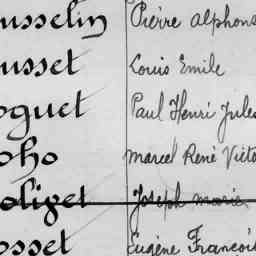 usselin Pierre Alphons
usset Louis Emile
oguet Paul Henri Jules
oho Marcel René Victo
oliget Joseph Marie
osset Eugène Francois